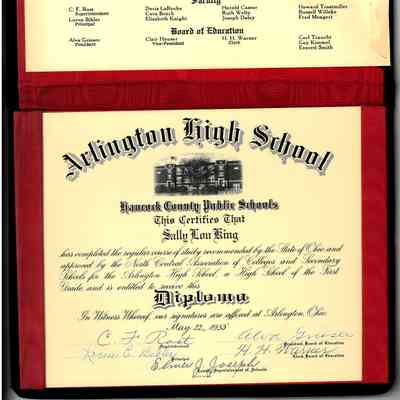 Faculty
C. F. Rost
Superintendent
Loren Bibler
Principal
Doris LaRoche
Cora Beach
Elizabeth Knight
Harold Caster
Ruth Welty
Joseph Daley
Howard Trostmiller
Russell Willeke
Fred Mengert
Board of Education
Alva Grieser
President
Clair Heuser
Vice-President
H. H. Warner
Clerk
Carl Traucht
Guy Kimmel
Everett Smith
Arlington High School
Hancock County Public Schools
This Certifies That
Sally Lou King
has completed the regular course of study recommended by the State of Ohio and
approved by the North Central Association of Colleges and Secondary
Schools for the Arlington High School, a High School of the First
Grade and is entitled to receive this
Diploma
In Witness Whereof, our signatures are affixed at Arlington, Ohio
May 22, 1955
C. F. Rost
Superintendent
Alva Grieser
President Board of Education
Principal
H. H. Warner
Clerk Board of Education
Elmer J. Joseph
County Superintendent of Schools